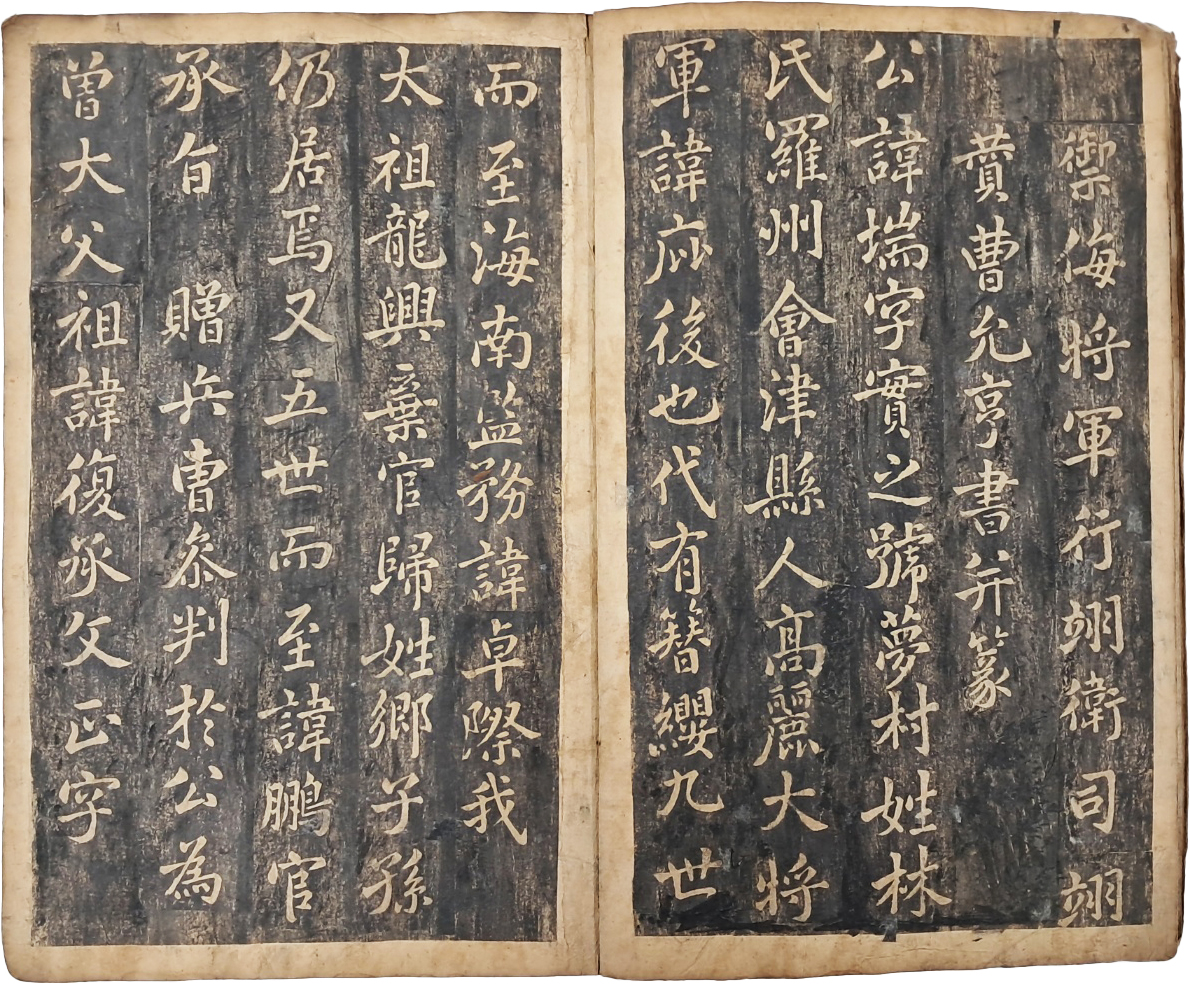 禦侮將軍行翊衛司翊
蕡曹允亨書并篆
公諱㙐字實之號夢村姓林
氏羅州會津縣人高麗大將
軍諱庇後也代有簪纓九世
而至海南監務諱卓際我
太祖龍興棄官歸姓鄉子孫
仍居焉又五世而至諱鵬官
承旨 贈兵曹參判於公為
曾大父祖諱復承文正字